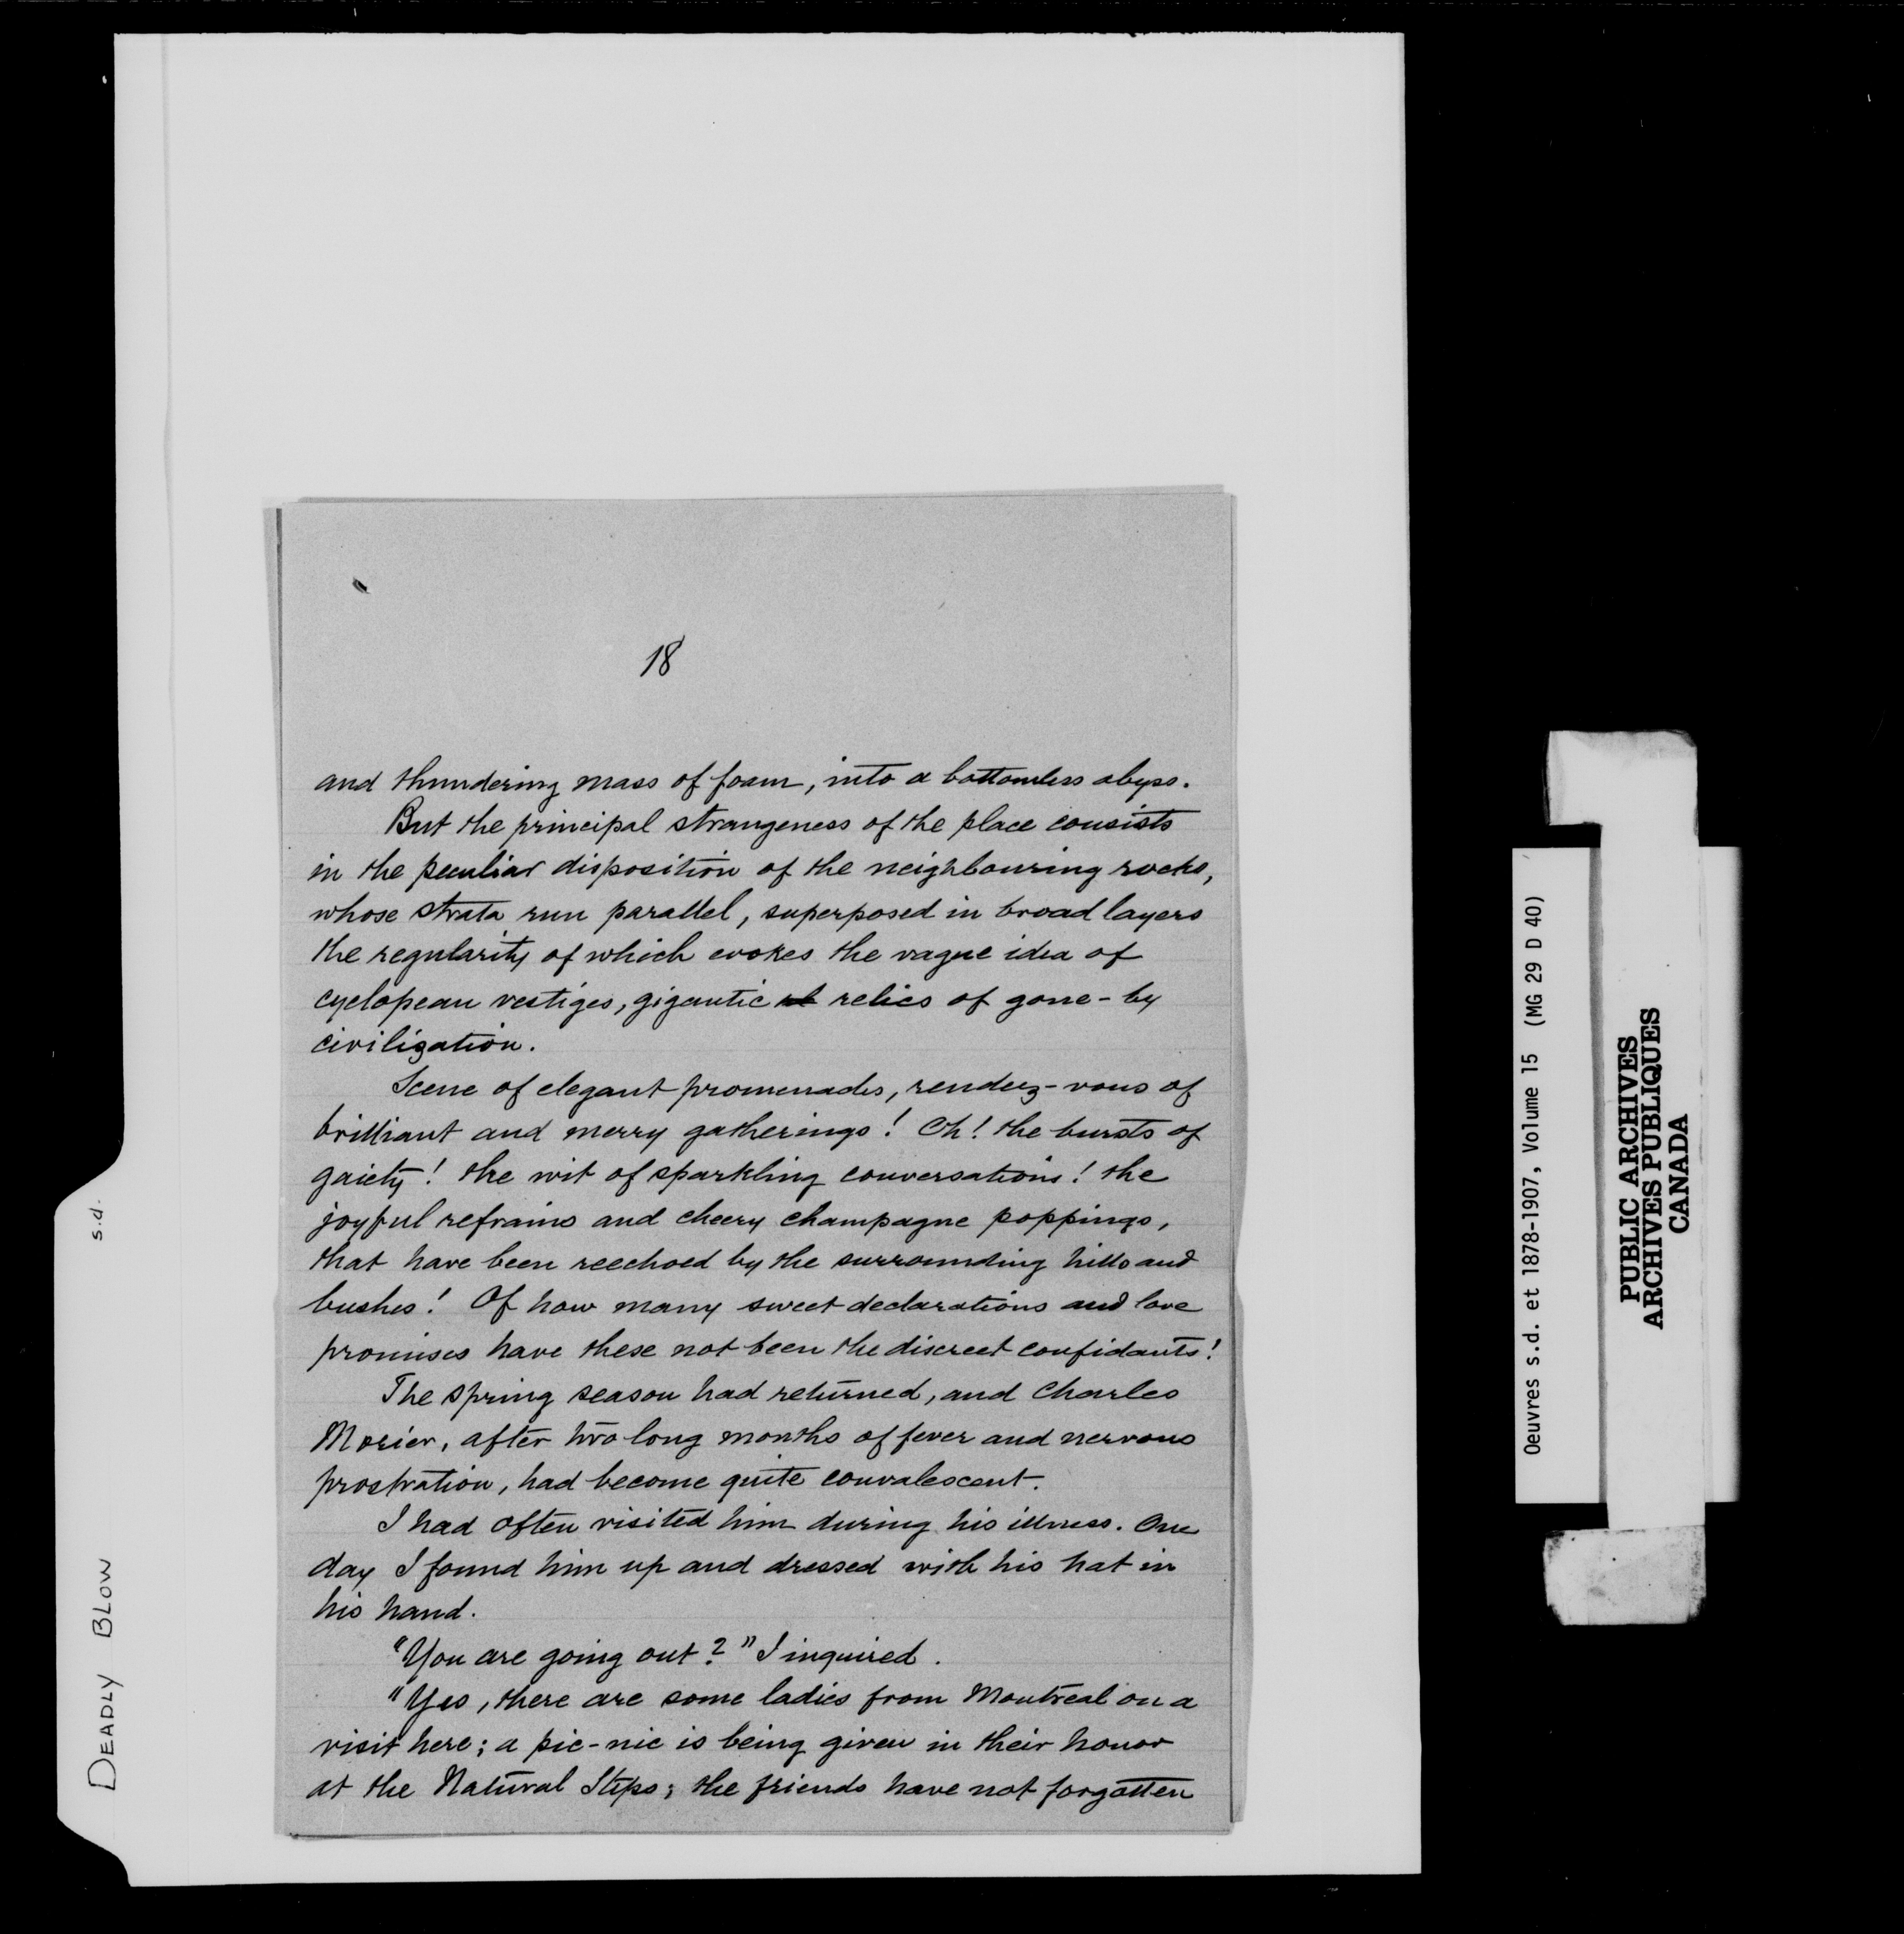 18
and thundering mass of foam, into a bottomless abyss.
But the principal strangeness of the place consists
in the peculiar disposition of the neighbouring rocks,
whose strata run parallel, superposed in broad layers
the regularity of which evokes the vague idea of
cyclopean vestiges, gigantic relics of gone-by
civilization.
Scene of elegant promenades, rendez-vous of
brilliant and merry gatherings! Oh! the bursts of
gaiety! the wit of sparkling conversations! the
joyful refrains and cheery champagne poppings,
that have been reechoed by the surrounding hills and
bushes! Of how many sweet declarations and love
promises have these not been the discreet confidants!
The spring season had returned, and Charles
Morier, after two long months of fever and nervous
prostration, had become quite convalescent.
I had often visited him during his illness. One
day I found him up and dressed with his hat in
his hand.
"You are going out?" I inquired.
"Yes, there are some ladies from Montreal on a
visit here; a pic-nic is being given in their honor
at the Natural Steps; the friends have not forgotten
DEADLY BLOW
s.d.
Oeuvres s.d. et 1878-1907, Volume 15 (MG 29 D 40)
PUBLIC ARCHIVES
ARCHIVES PUBLIQUES
CANADA